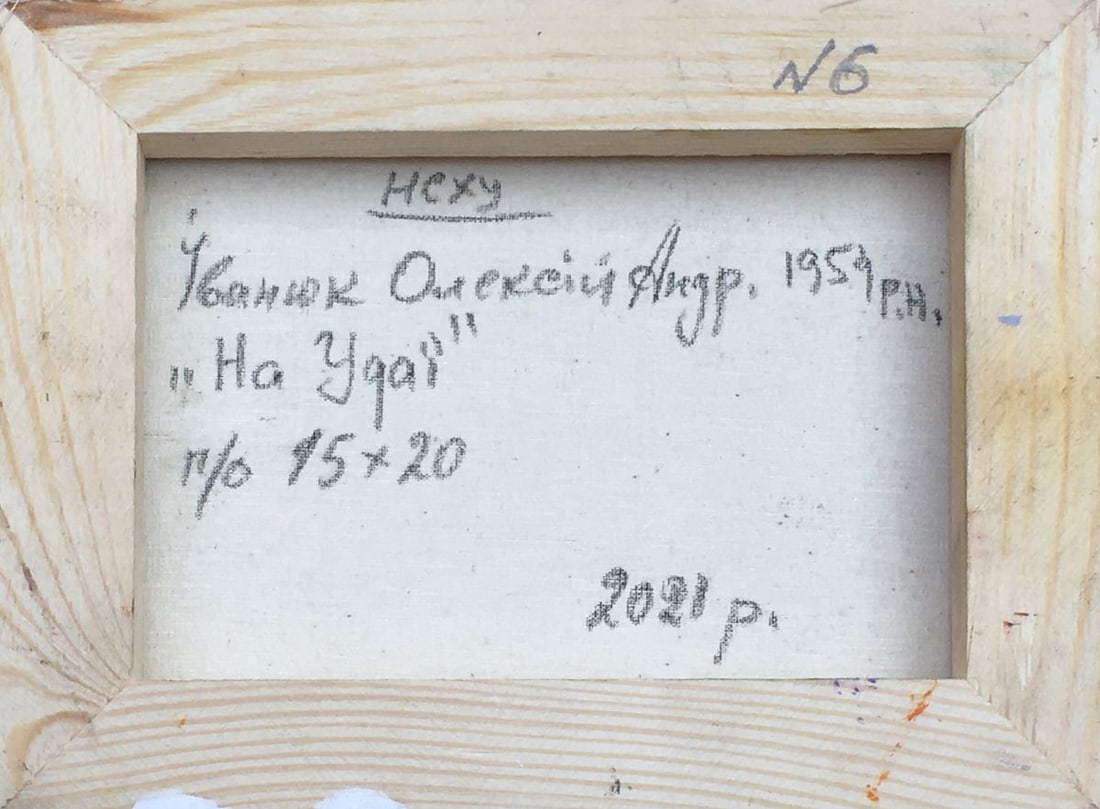 №6
НСХУ
Іванюк Олексій Андр. 1954 р.н.
„На Удаї"
п/о 15×20
2021 р.